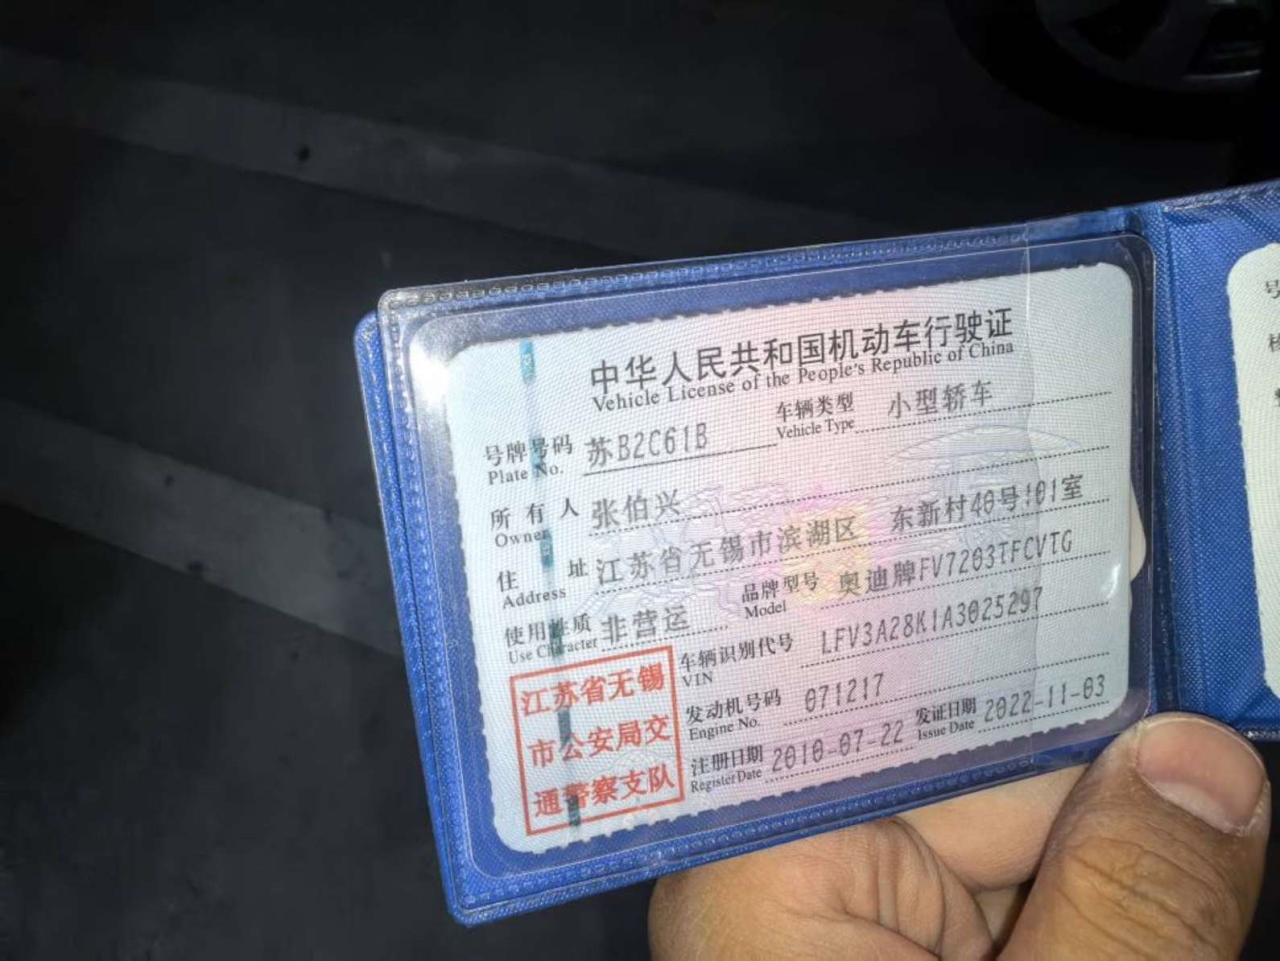 中华人民共和国机动车行驶证
Vehicle License of the People's Republic of China
号牌号码 苏B2C61B 车辆类型 小型轿车
Plate No. Vehicle Type
所有人 张伯兴
Owner
住址 江苏省无锡市滨湖区 东新村40号101室
Address
使用性质 非营运 品牌型号 奥迪牌FV7203TFCVTG
Use Character Model
车辆识别代号 LFV3A28K1A3025297
VIN
发动机号码 071217
Engine No.
注册日期 2010-07-22 发证日期 2022-11-03
Register Date Issue Date
江苏省无锡
市公安局交
通警察支队
号